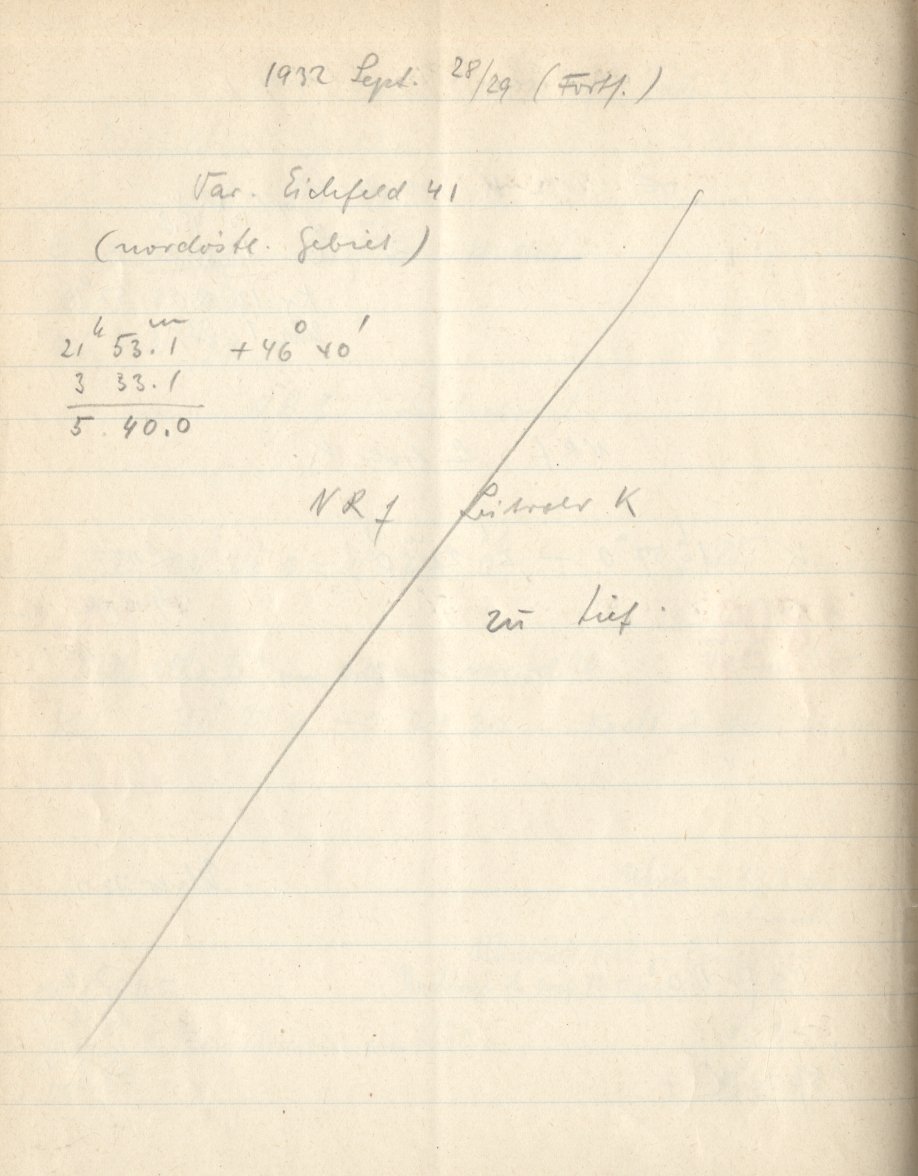 1932 Sept. 28/29 (Forts.)
Var. Eichfeld 41
(nordöstl. Gebiet)
21h 53.m1 +46° 40'
3 33.1
5 40.0
NR f K
zu tief.